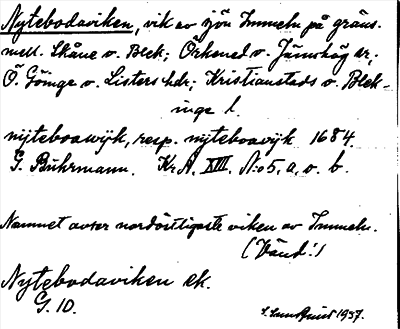 Nytebodaviken, vik av sjön Immeln på gräns.
mell. Skåne o. Blek; Örkened o. Jämshög sr;
Ö. Göinge o. Listers hdr; Kristianstads o. Blek-
inge l.
nÿteboawÿk, resp. nÿteboavÿk 1684.
G. Buhrmann. Kr A. XIII. N:o 5, a, o. b.
Namnet avser nordöstligaste viken av Immeln.
(Vänd!)
Nytebodaviken ek.
G. 10.
1937.